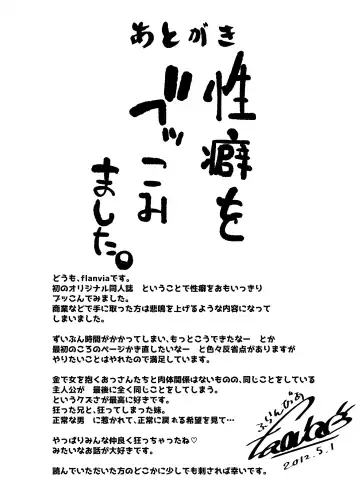 あとがき
性癖を
ブッこみ
ました。
どうも、flanviaです。
初のオリジナル同人誌　ということで性癖をおもいっきり
ブッこんでみました。
商業などで手に取った方は悲鳴を上げるような内容になって
しまいました。
ずいぶん時間がかかってしまい、もっとこうできたなー　とか
最初のころのページかき直したいなー　と色々反省点がありますが
やりたいことはやれたので満足しています。
金で女を抱くおっさんたちと肉体関係はないものの、同じことをしている
主人公が　最後に全く同じことをしてしまう。
というクズさが最高に好きです。
狂った兄と、狂ってしまった妹。
正常な男　に惹かれて、正常に戻れる希望を見て…
やっぱりみんな仲良く狂っちゃったね♡
みたいな話が大好きです。
読んでいただいた方のどこかに少しでも刺されば幸いです。
ふらんびあ
2012.5.1